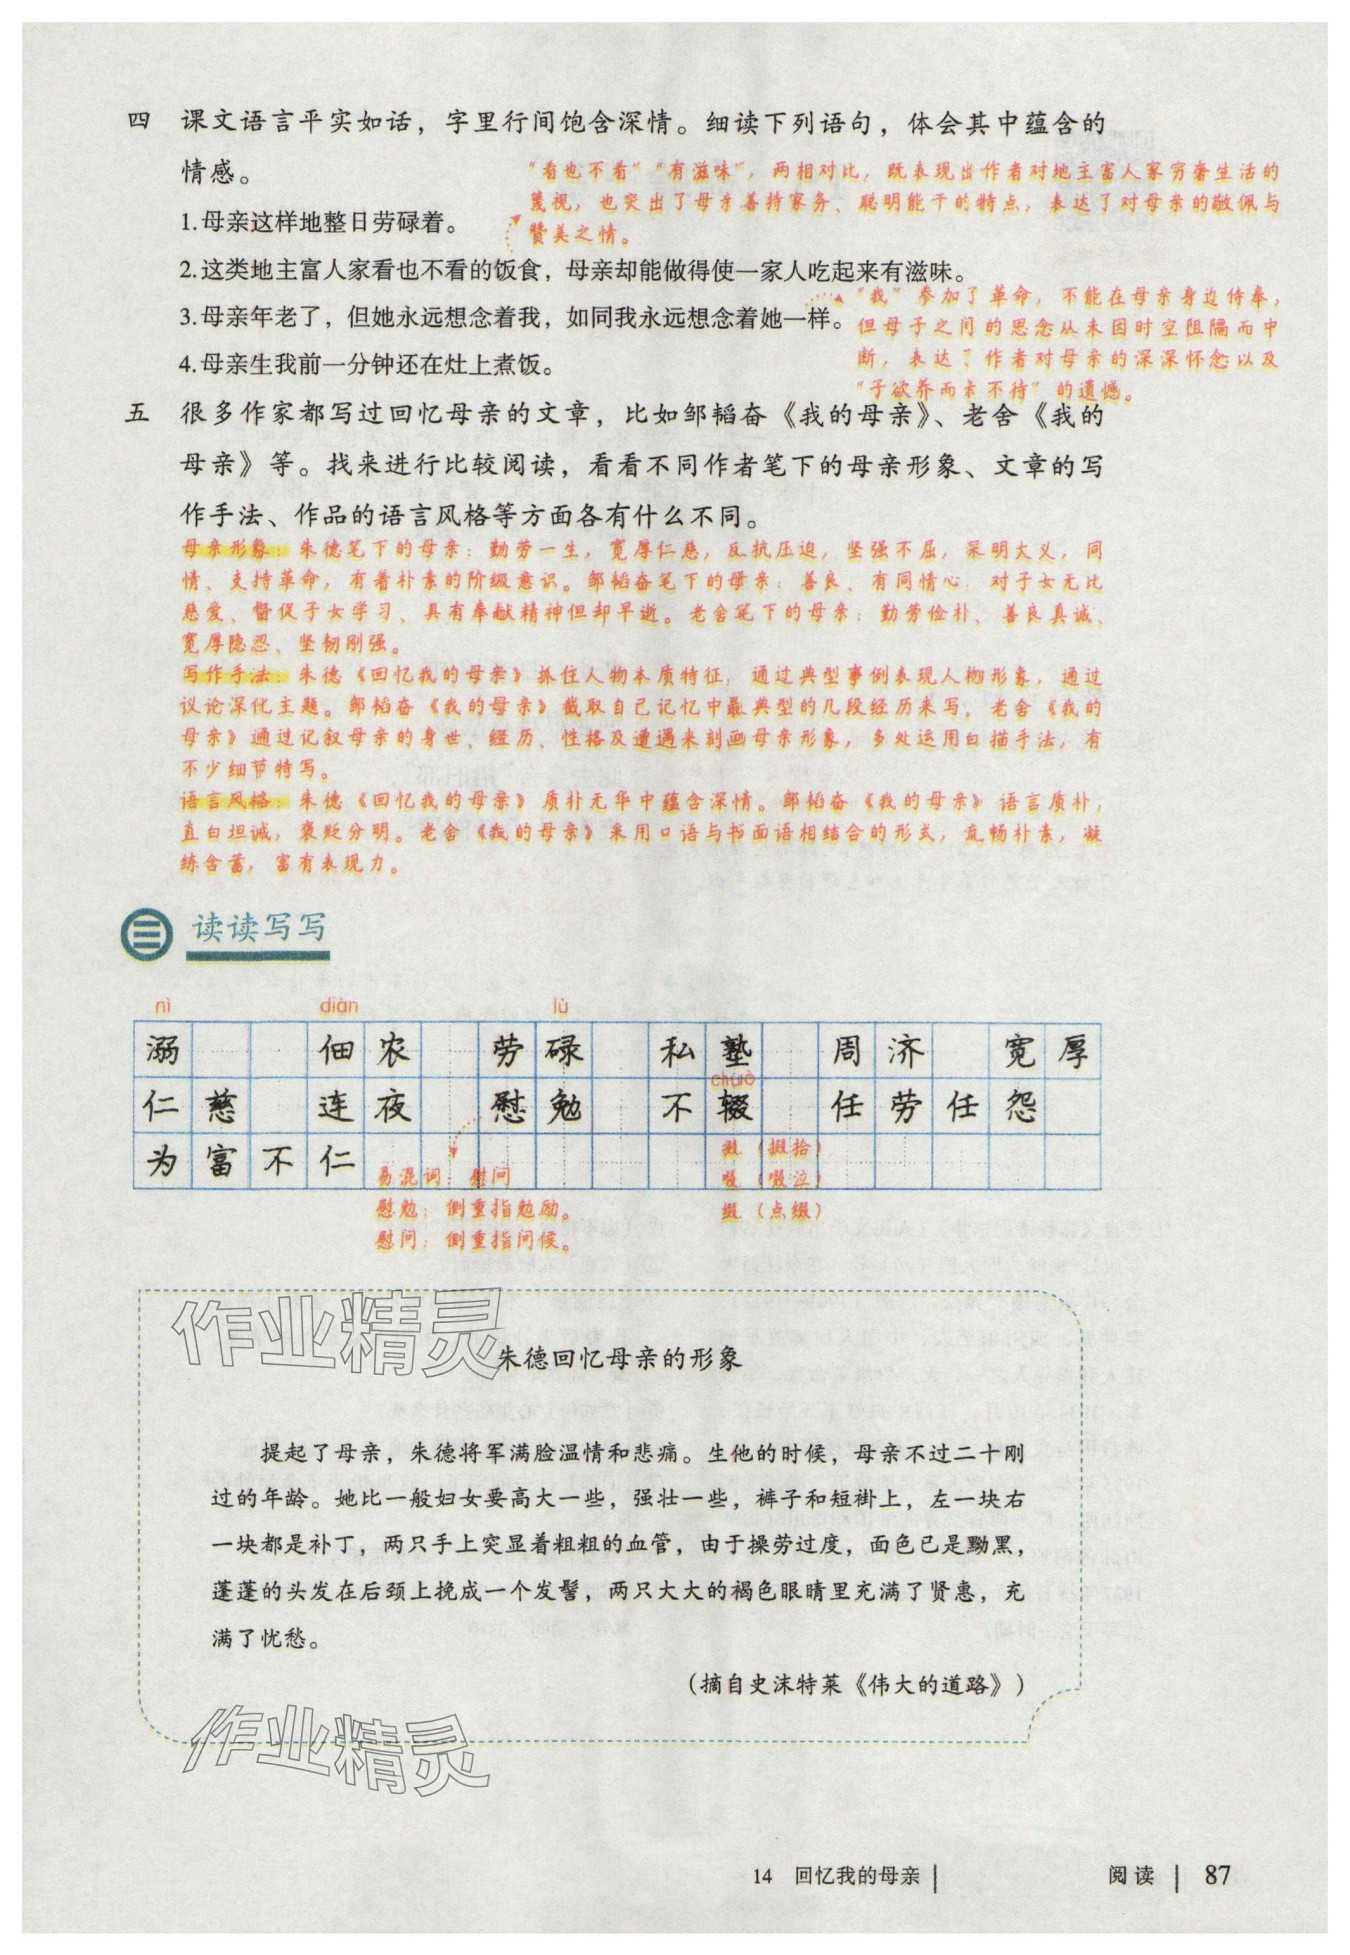 四 课文语言平实如话，字里行间饱含深情。细读下列语句，体会其中蕴含的
情感。
“看也不看”“有滋味”，两相对比，既表现出作者对地主富人家穷奢生活的
蔑视，也突出了母亲善持家务、聪明能干的特点，表达了对母亲的敬佩与
赞美之情。
1.母亲这样地整日劳碌着。
2.这类地主富人家看也不看的饭食，母亲却能做得使一家人吃起来有滋味。
3.母亲年老了，但她永远想念着我，如同我永远想念着她一样。
“我”参加了革命，不能在母亲身边侍奉，
但母子之间的思念从未因时空阻隔而中
断，表达了作者对母亲的深深怀念以及
“子欲养而亲不待”的遗憾。
4.母亲生我前一分钟还在灶上煮饭。
五 很多作家都写过回忆母亲的文章，比如邹韬奋《我的母亲》、老舍《我的
母亲》等。找来进行比较阅读，看看不同作者笔下的母亲形象、文章的写
作手法、作品的语言风格等方面各有什么不同。
母亲形象：朱德笔下的母亲：勤劳一生，宽厚仁慈，反抗压迫，坚强不屈，深明大义，同
情、支持革命，有着朴素的阶级意识。邹韬奋笔下的母亲：善良、有同情心；对子女无比
慈爱、督促子女学习、具有奉献精神但却早逝。老舍笔下的母亲：勤劳俭朴、善良真诚、
宽厚隐忍、坚韧刚强。
写作手法：朱德《回忆我的母亲》抓住人物本质特征，通过典型事例表现人物形象，通过
议论深化主题。邹韬奋《我的母亲》截取自己记忆中最典型的几段经历来写，老舍《我的
母亲》通过记叙母亲的身世、经历、性格及遭遇来刻画母亲形象，多处运用白描手法，有
不少细节特写。
语言风格：朱德《回忆我的母亲》质朴无华中蕴含深情。邹韬奋《我的母亲》语言质朴，
直白坦诚，褒贬分明。老舍《我的母亲》采用口语与书面语相结合的形式，流畅朴素，凝
练含蓄，富有表现力。
读读写写
nì diàn lù
溺 佃农 劳碌 私塾 周济 宽厚
chuò
仁慈 连夜 慰勉 不辍 任劳任怨
为富不仁
易混词：慰问
慰勉：侧重指勉励。
慰问：侧重指问候。
掇（掇拾）
啜（啜泣）
缀（点缀）
作业精灵
朱德回忆母亲的形象
提起了母亲，朱德将军满脸温情和悲痛。生他的时候，母亲不过二十刚
过的年龄。她比一般妇女要高大一些，强壮一些，裤子和短褂上，左一块右
一块都是补丁，两只手上突显着粗粗的血管，由于操劳过度，面色已是黝黑，
蓬蓬的头发在后颈上挽成一个发髻，两只大大的褐色眼睛里充满了贤惠，充
满了忧愁。
（摘自史沫特莱《伟大的道路》）
作业精灵
14 回忆我的母亲 阅读 87